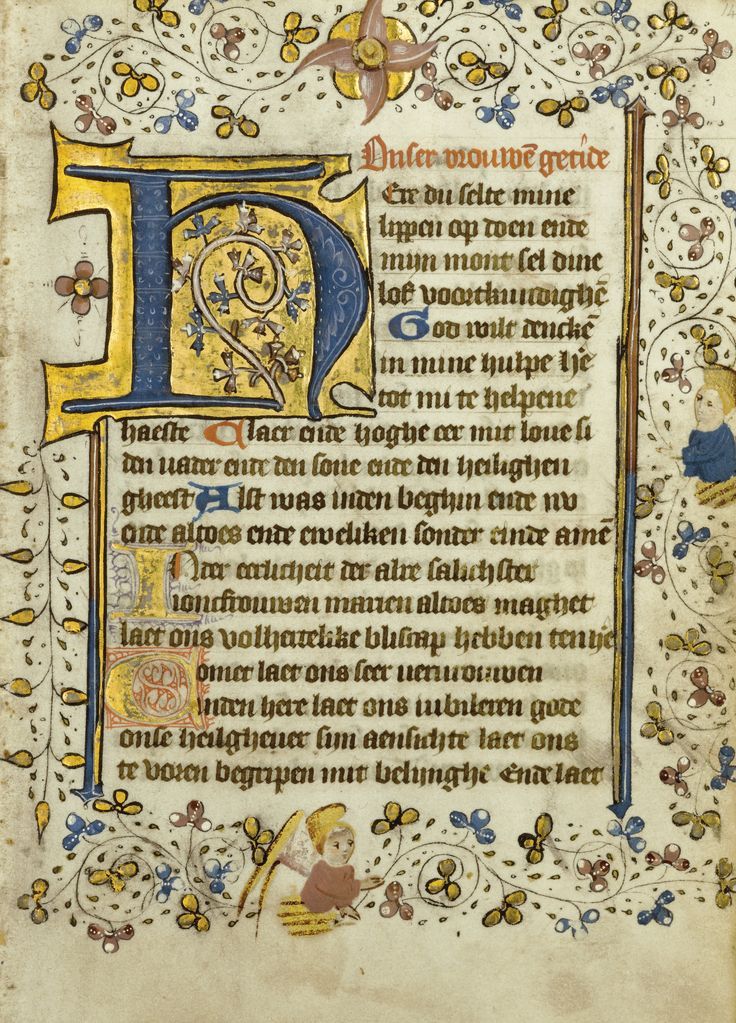 Onser vrouwē getide
HEre du selte mine
lippen op doen ende
mijn mont sel dine
lof voortkundighē
God wilt denckē
in mine hulpe h̄e
tot mi te helpene
haeste Claer ende hoghe eer mit loue si
den uader ende den sone ende den heilighen
gheest Alst was inden beghin ende nv
ende altoes ende eweliken sonder einde amē
Inder eerlicheit der alre salichster
ioncfrouwen marien altoes maghet
laet ons volheitelike bliscap hebben ten h̄e
Comet laet ons seer uervrouwen
inden here laet ons iubileren gode
onse heilgheuer sijn aensichte laet ons
te voren begripen mit belijnghe Ende laet